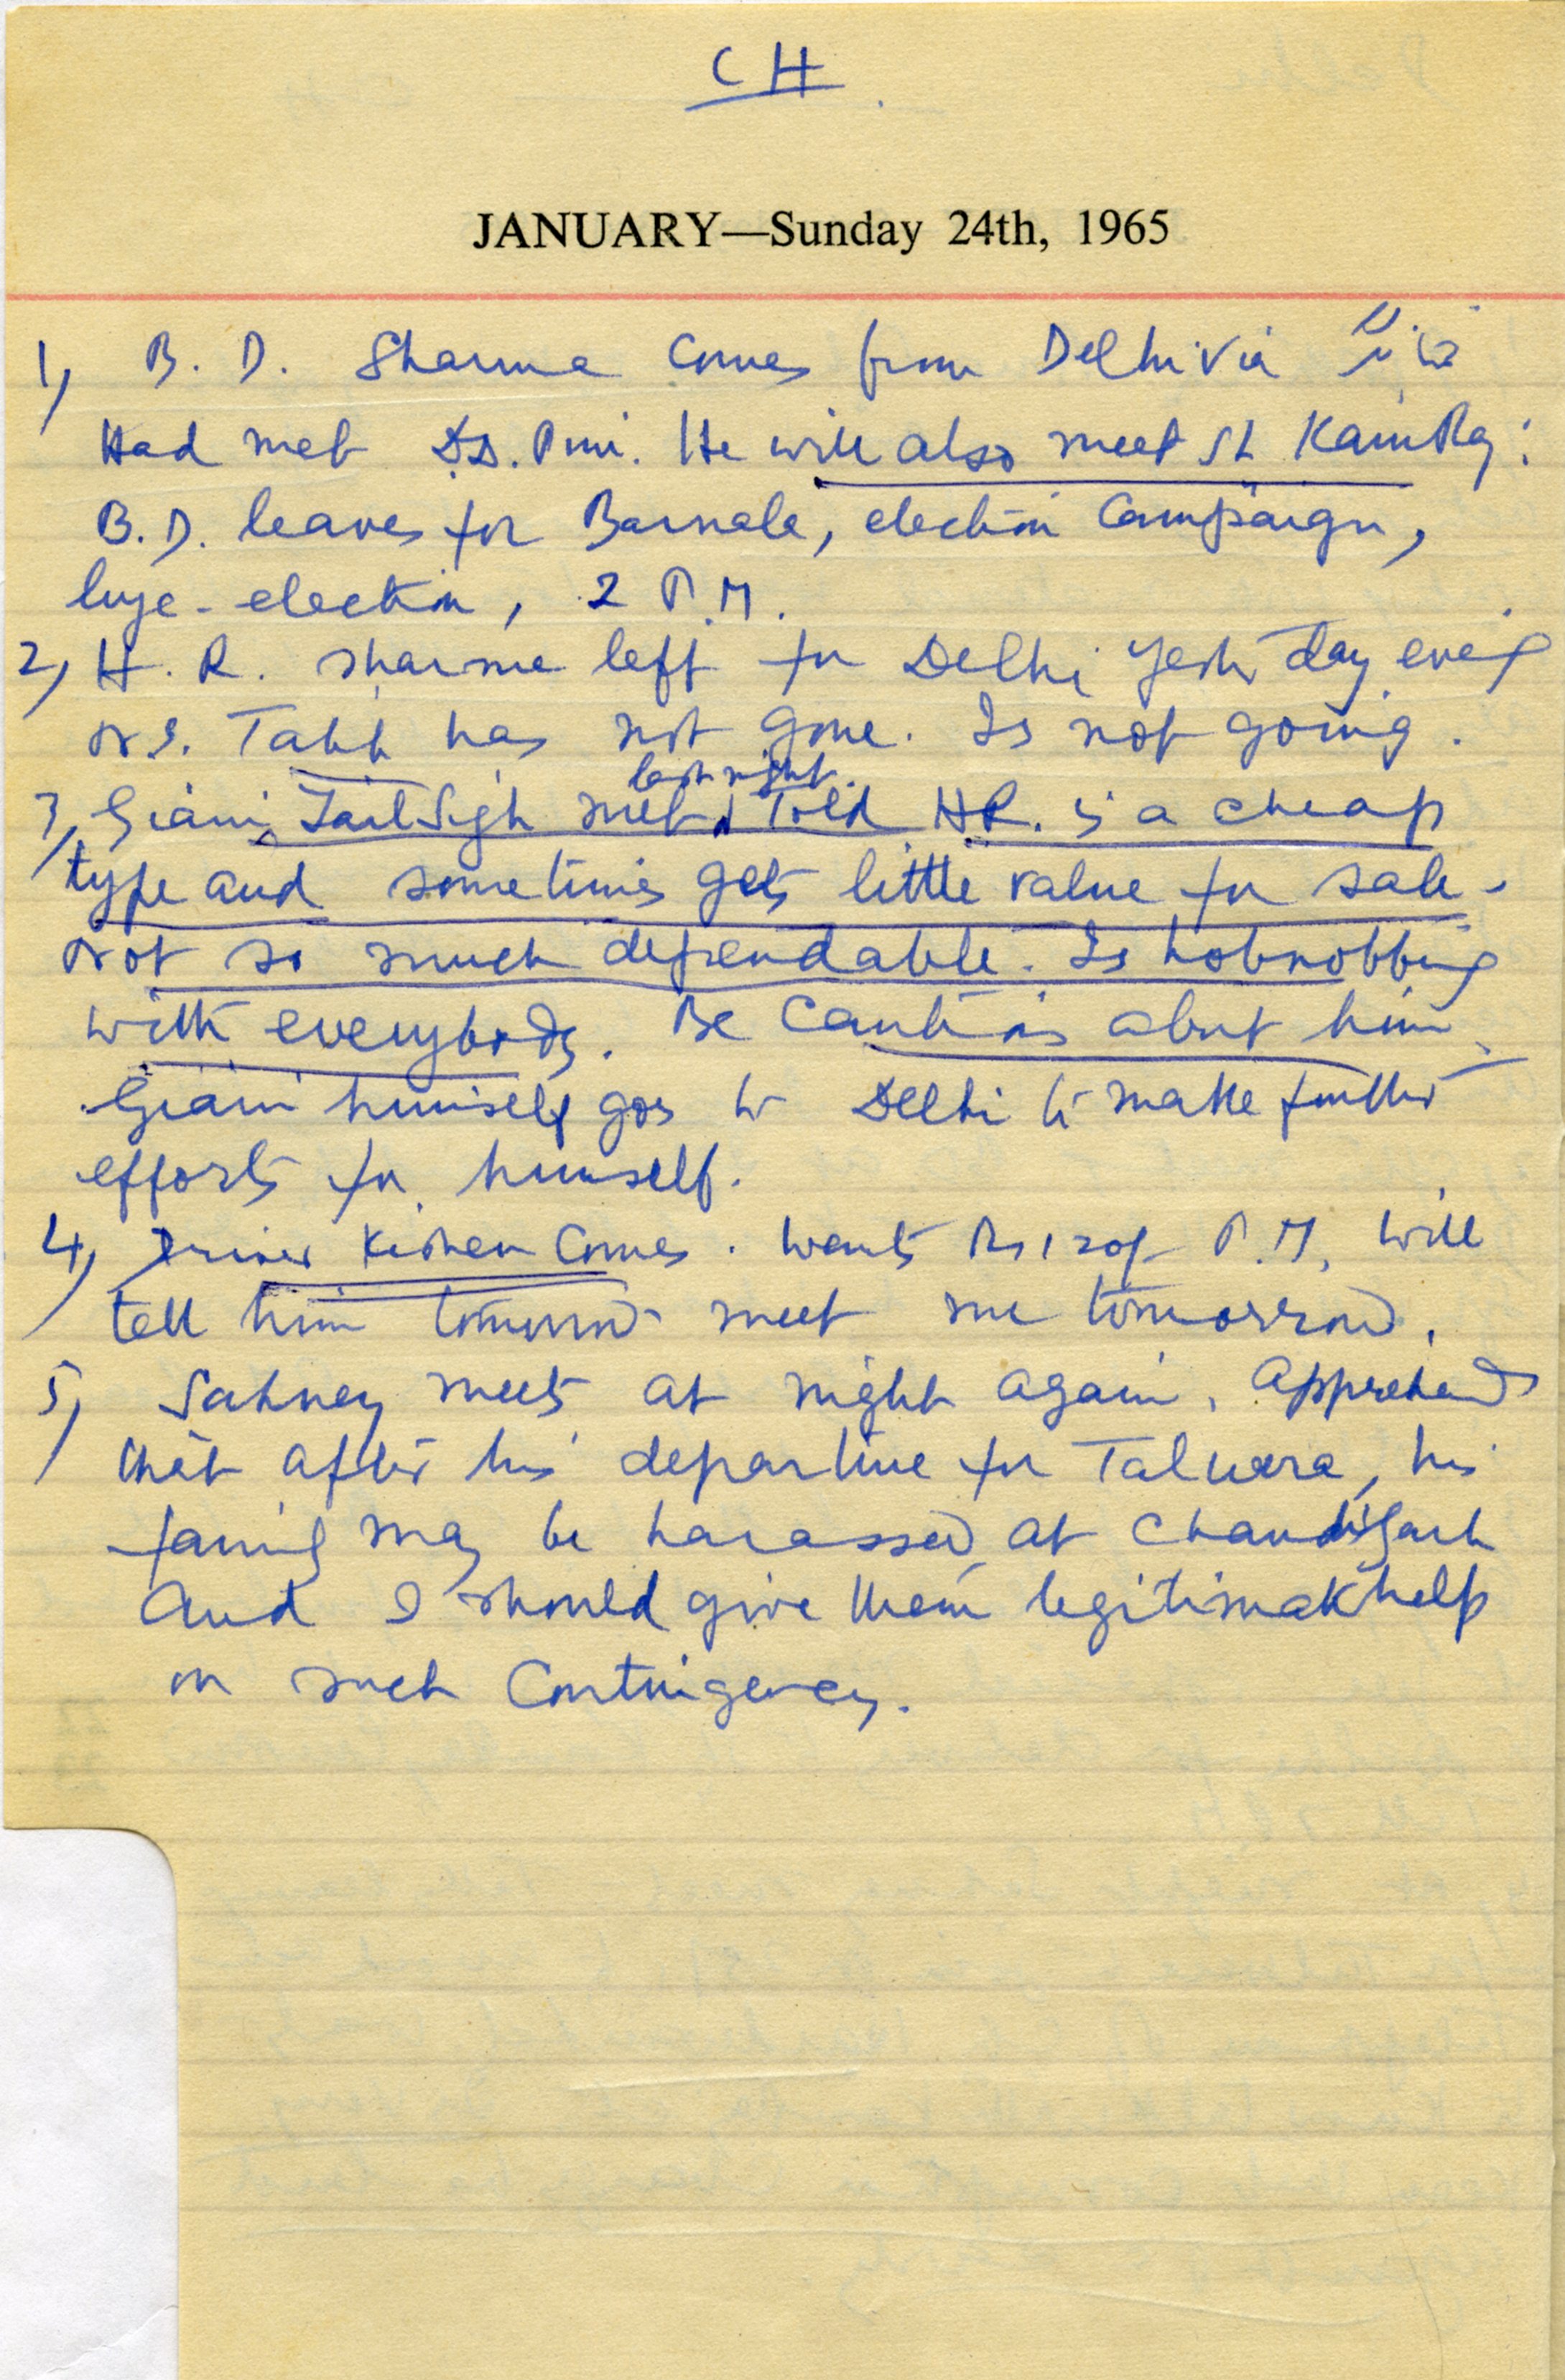 CH
JANUARY—Sunday 24th, 1965
1) B. D. Sharma comes from Delhi via
Had met D.D. Puri. He will also meet Sh Kamraj:
B.D. leaves for Barnala, election campaign,
bye-election, 2 P.M.
2) H. R. Sharma left for Delhi yesterday evng
N.S. Tabb has not gone. Is not going.
last night
3) Giani Zail Singh met & told HR. is a cheap
type and sometimes gets little value for sale.
Not so much dependable. Is hobnobbing
with everybody. Be cautious about him.
Giani himself goes to Delhi to make further
efforts for himself.
4) Driver Kishen comes. Wants Rs 120/- P.M. Will
tell him tomorrow meet me tomorrow.
5) Sahney meets at night again. Apprehends
that after his departure for Talwara, his
family may be harassed at Chandigarh
and I should give them legitimate help
in such contingency.